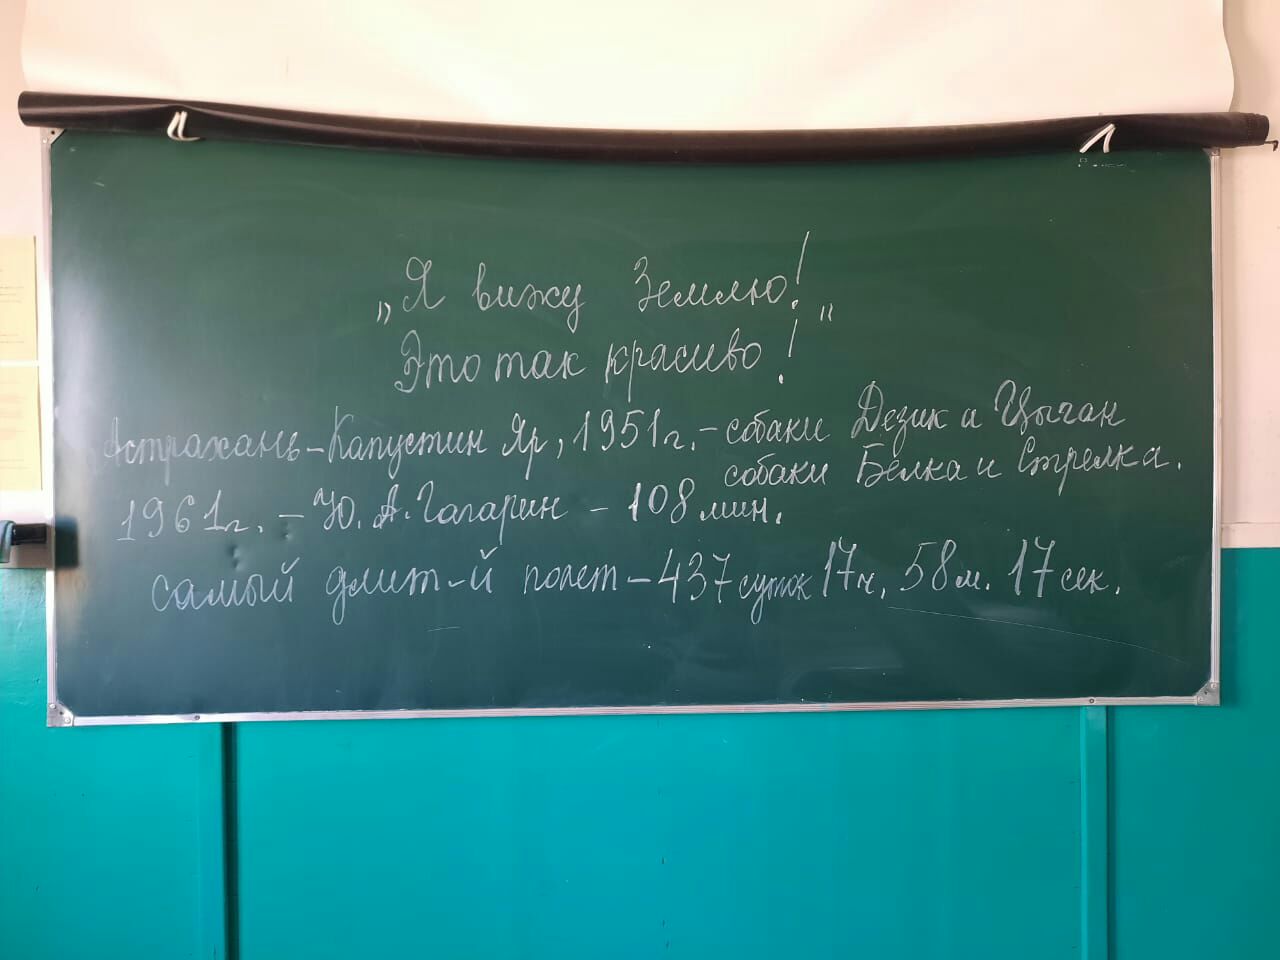 „Я вижу Землю!
Это так красиво!"
Астрахань-Капустин Яр, 1951г.-собаки Дезик и Цыган
собаки Белка и Стрелка.
1961г. - Ю. А. Гагарин - 108 мин.
самый длит-й полет - 437 суток 17ч. 58м. 17сек.